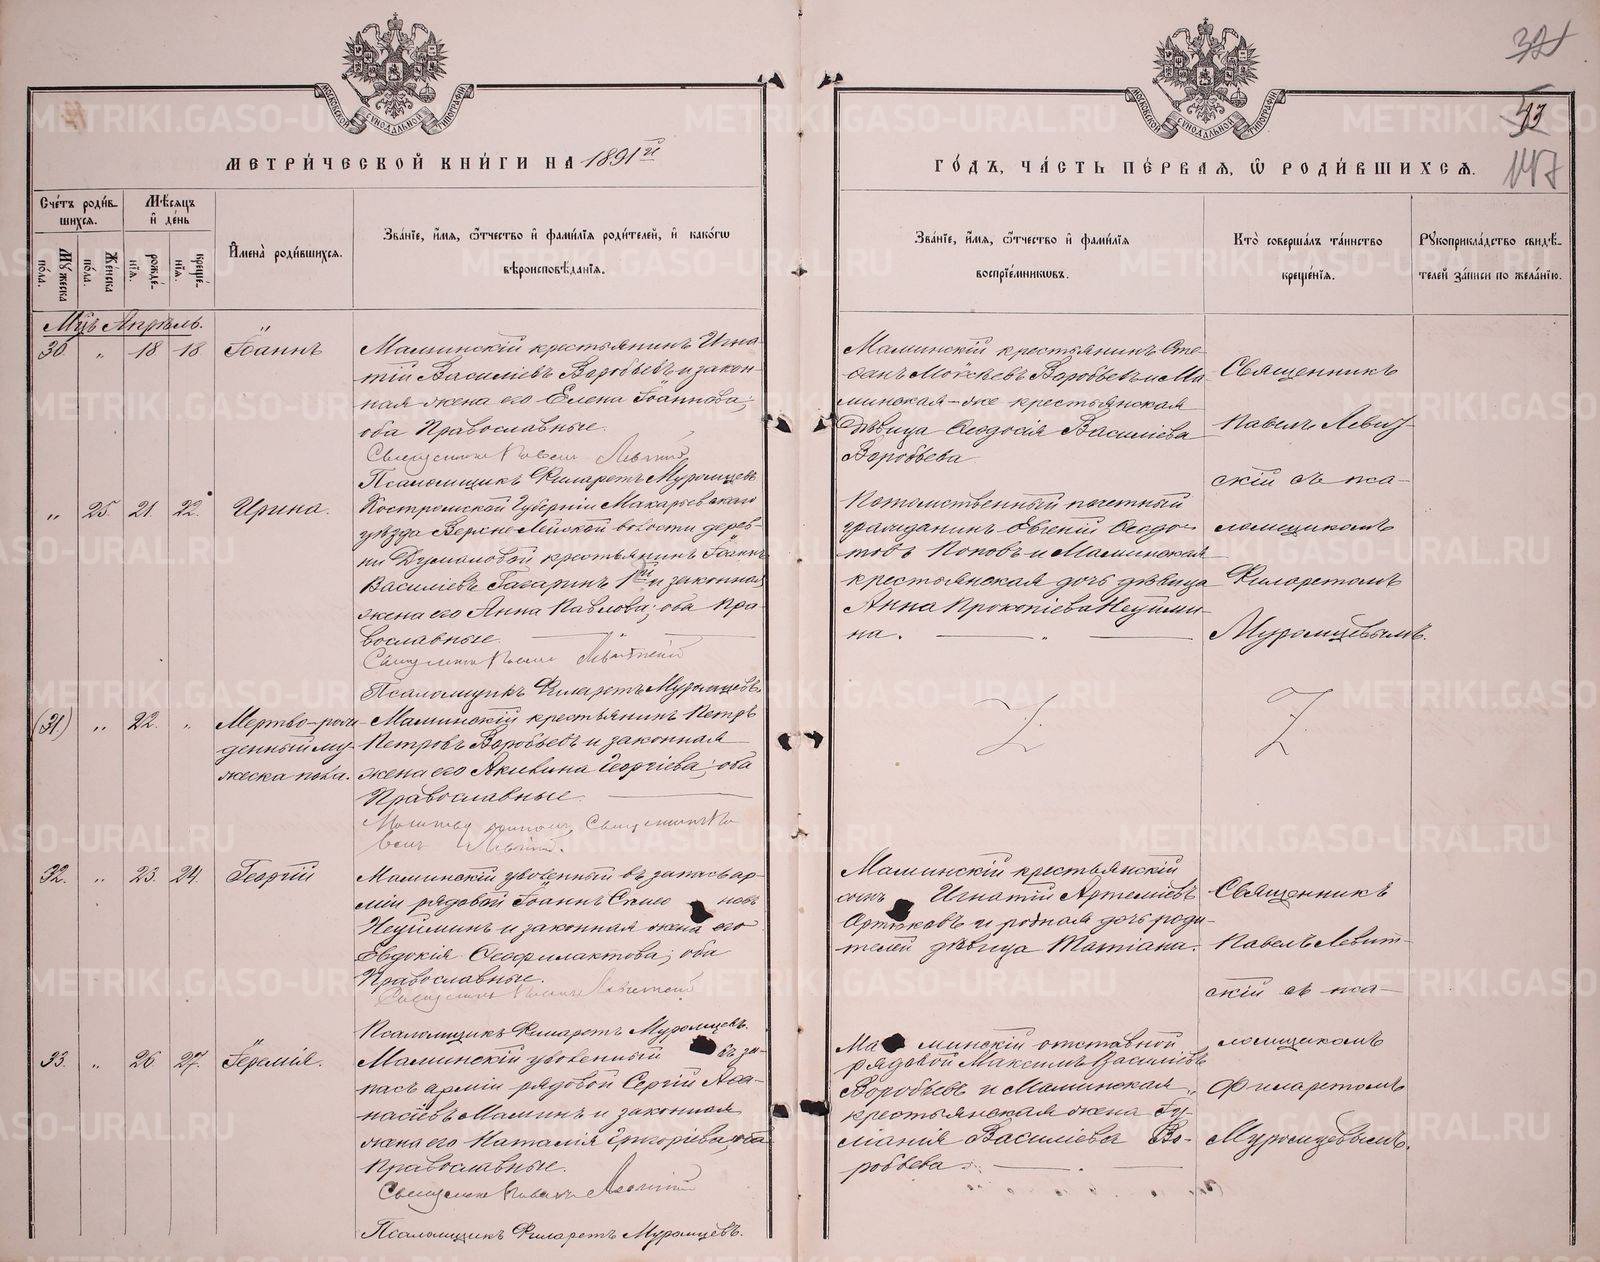 МЕТРИ́ЧЕСКОЙ КНИ́ГИ НА 1891й
Сче́тъ роди́в-
шихсѧ.
Мѣсѧцъ
и҆ де́нь
И҆мена̀ роди́вшихсѧ.
Зва́нїе, и҆́мѧ, ѻ҆́тчество и҆ фами́лїѧ роди́телей, и҆ како́гѡ
вѣроисповѣ́данїѧ.
Мꙋ́жеска
по́ла.
Же́нска
по́ла.
рожде́-
нїѧ.
креще́-
нїѧ.
Мцъ Апрѣль.
30 „ 18 18 Іоаннъ
Маминскій крестьянинъ Игна-
тій Василіевъ Воробьевъ и закон-
ная жена его Елена Іоаннова;
оба Православные.
Священникъ Павелъ Левитскій
Псаломщикъ Филаретъ Муромцевъ
„ 25. 21. 22. Ирина.
Костромской Губерніи Макарьевскаго
уѣзда Верхне-Лейской волости дерев-
ни Думановой крестьянинъ Іоаннъ
Василіевъ Гагаринъ 1й и законная
жена его Анна Павлова; оба Пра-
вославные.
Священникъ Павелъ Левитскій
Псаломщикъ Филаретъ Муромцевъ
(31.) „ 22. „ Мертво-рож-
денный му-
жеска пола.
Маминскій крестьянинъ Петръ
Петровъ Воробьевъ и законная
жена его Акилина Георгіева; оба
Православные.
Молитвовалъ Священникъ Па
велъ Левитскій.
32. „ 23. 24. Георгій
Маминскій уволенный въ запасъ ар-
міи рядовой Іоаннъ новъ
Неуйминъ и законная жена его
Евдокія Ѳеофилактова; оба
Православные.
Священникъ Павелъ Левитскій
Псаломщикъ Филаретъ Муромцевъ.
33. „ 26 27. Іеремія.
Маминскій уволенный въ за-
пасъ арміи рядовой Сергій Аѳа-
насіевъ Маминъ и законная
жена его Наталія Григоріева; оба
Православные.
Священникъ Павелъ Левитскій
Псаломщикъ Филаретъ Муромцевъ.
32
13
147
ГО́ДЪ, ЧА́СТЬ ПЕ́РВАѦ, Ѡ҆ РОДИ́ВШИХСѦ.
Зва́нїе, и҆́мѧ, ѻ҆́тчество и҆ фами́лїѧ
воспрїе́мникѡвъ.
Кто̀ соверша́лъ та́инство
креще́нїѧ.
Рꙋкоприкла́дство свидѣ́-
телей за́писи по жела́нїю.
Маминскій крестьянинъ Сте-
фанъ Моѵсѣевъ Воробьевъ и Ма-
минская-же крестьянская
дѣвица Ѳеодосія Василіева
Воробьева.
Священникъ
Павелъ Левит-
скій съ пса-
ломщикомъ
Филаретомъ
Муромцевымъ.
Потомственный почетный
гражданинъ Евгеній Ѳеодо-
товъ Поповъ и Маминская
крестьянская дочь дѣвица
Анна Прокопіева Неуйми-
на.
Z. Z.
Маминскій крестьянскій
сынъ Игнатій Артеміевъ
и родная дочь роди-
телей дѣвица Татіана.
Священникъ
Павелъ Левит-
скій съ пса-
ломщикомъ
Филаретомъ
Муромцевымъ.
Маминскій отставной
рядовой Максимъ Василіевъ
Воробьевъ и Маминская
крестьянская жена Іу-
ліанія Василіева Во-
робьева.
METRIKI.GASO-URAL.RU